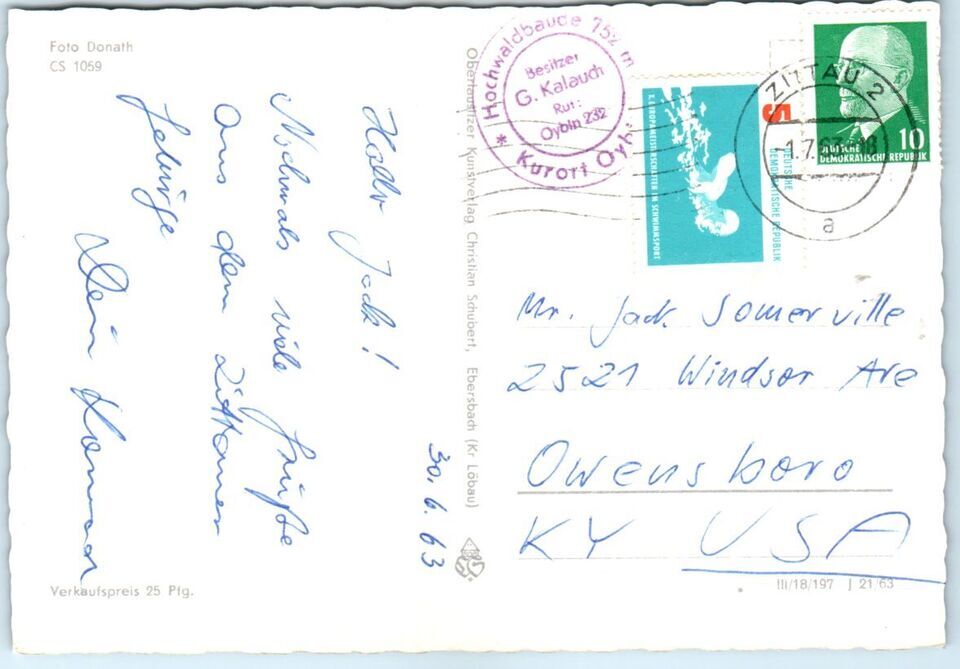 Foto Donath
CS 1059
30.6.63
Hallo Jack!
Nochmals viele Grüße
aus dem Zittauer
Gebirge
Dein
Verkaufspreis 25 Pfg.
Oberlausitzer Kunstverlag Christian Schubert, Ebersbach (Kr Löbau)
* Hochwaldbaude 752 m
Besitzer
G. Kalauch
Ruf:
Oybin 232
* Kurort Oyb
5
DEUTSCHE
DEMOKRATISCHE REPUBLIK
X. EUROPAMEISTERSCHAFTEN IM SCHWIMMSPORT
ZITTAU 2
-1.7.63
a
10
DEUTSCHE
DEMOKRATISCHE REPUBLIK
Mr. Jack Somerville
2521 Windsor Ave
Owensboro
KY USA
III/18/197 J 21/63